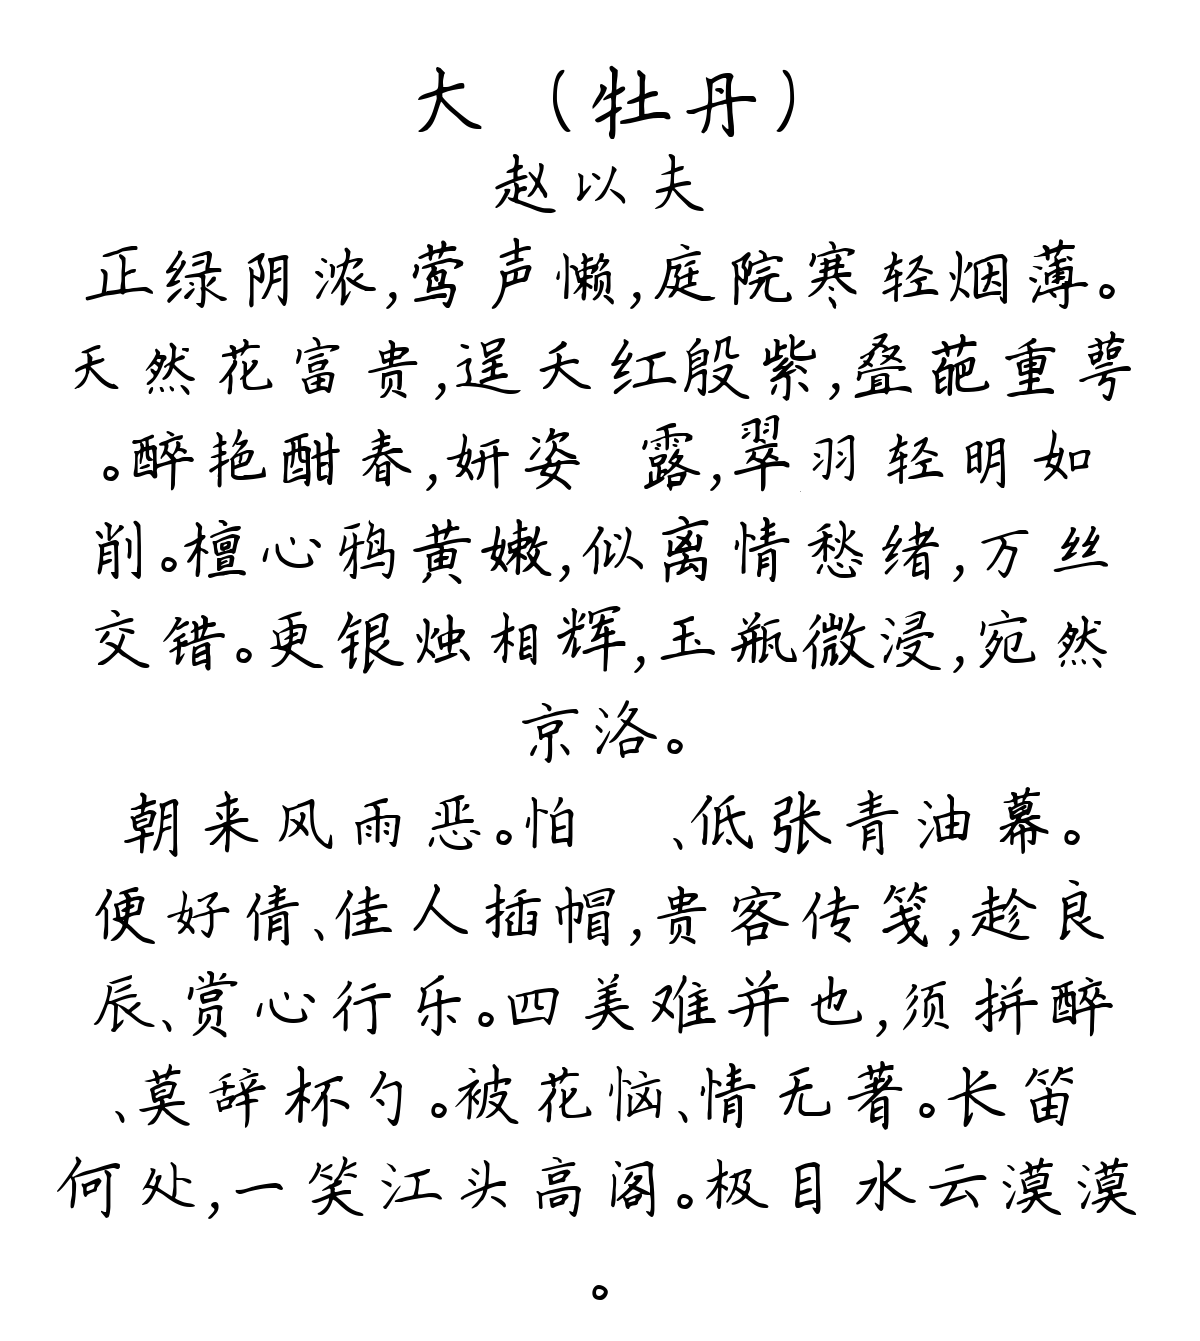 大 （牡丹）
赵以夫
正绿阴浓,莺声懒,庭院寒轻烟薄。
天然花富贵,逞夭红殷紫,叠葩重萼
。醉艳酣春,妍姿 露,翠羽轻明如
削。檀心鸦黄嫩,似离情愁绪,万丝
交错。更银烛相辉,玉瓶微浸,宛然
京洛。
朝来风雨恶。怕 、低张青油幕。
便好倩、佳人插帽,贵客传笺,趁良
辰、赏心行乐。四美难并也,须拼醉
、莫辞杯勺。被花恼、情无著。长笛
何处,一笑江头高阁。极目水云漠漠
。